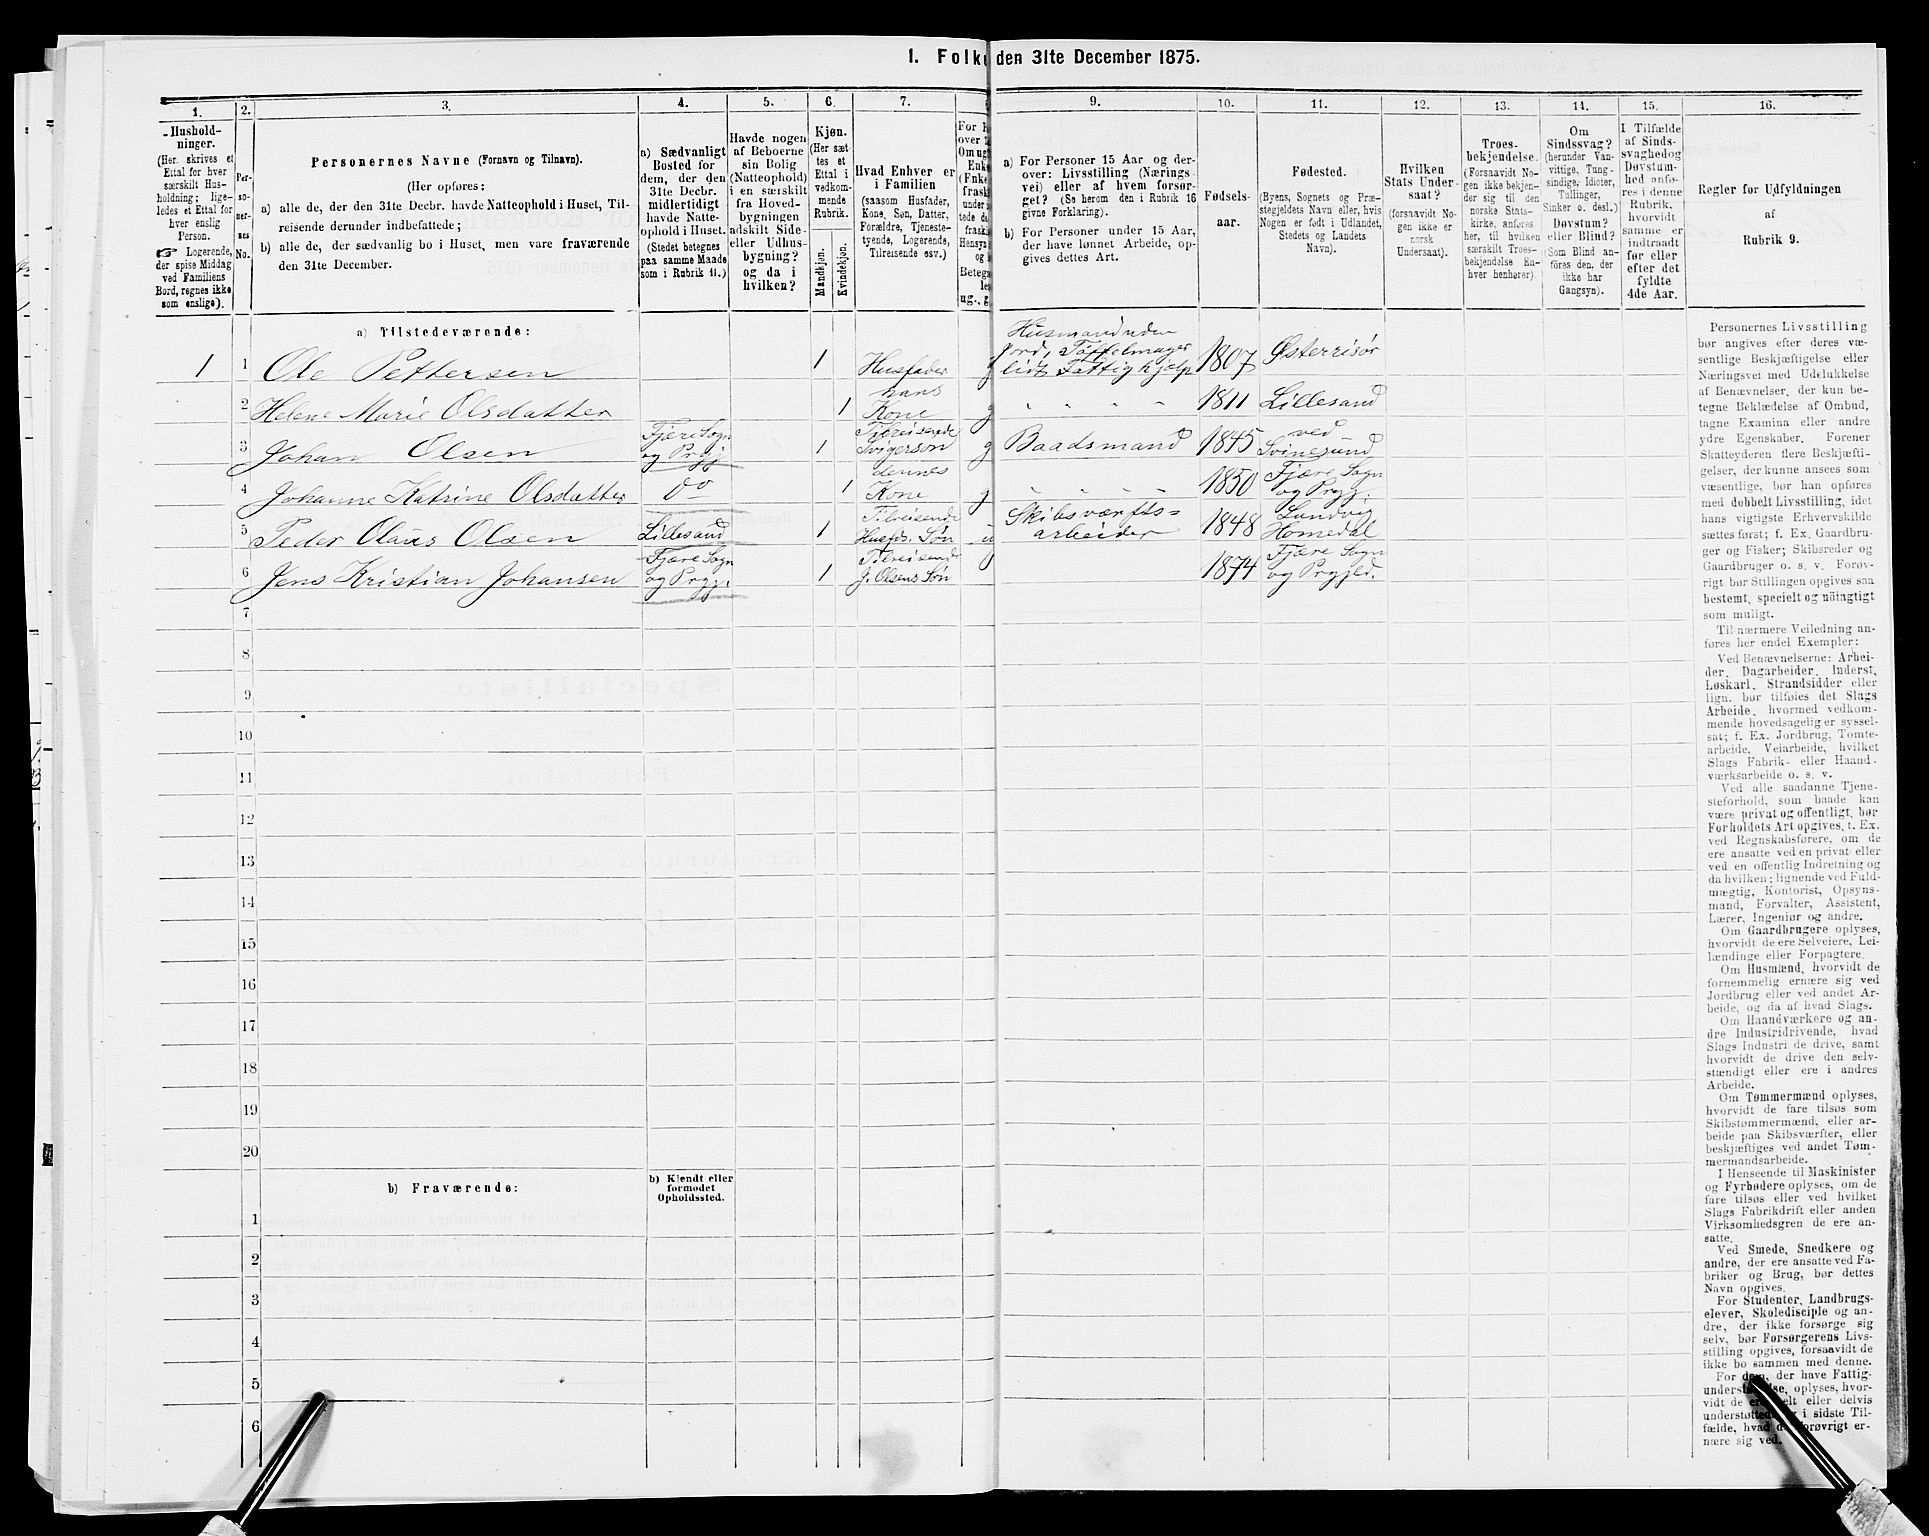 1. Folk den 31te December 1875.
1. 2. 3. 4. 5. 6. 7. 9. 10. 11. 12. 13. 14. 15. 16.
Hushold-
ninger.
(Her skrives et
Ettal for hver
særskilt Hus-
holdning; lige-
ledes et Ettal for
hver enslig
Person.
☞ Logerende,
der spise Middag
ved Familiens
Bord, regnes ikke
som enslige).
Per-
so-
ner-
nes
No.
Personernes Navne (Fornavn og Tilnavn).
(Her opføres:
a) alle de, der den 31te Decbr. havde Natteophold i Huset, Til-
reisende derunder indbefattede;
b) alle de, der sædvanlig bo i Huset, men vare fraværende
den 31te December.
a) Sædvanligt
Bosted for
dem, der den
31te Decbr.
midlertidigt
havde Natte-
ophold i Huset.
(Stedet betegnes
paa samme Maade
som i Rubrik 11.)
Havde nogen
af Beboerne
sin Bolig
(Natteophold)
i en særskilt
fra Hoved-
bygningen
adskilt Side-
eller Udhus-
bygning?
og da i
hvilken?
Kjøn.
(Her sæt-
tes et
Ettal i
vedkom-
mende
Rubrik.
Mandkjøn.
Kvindekjøn.
Hvad Enhver er
i Familien
(saasom Husfader,
Kone, Søn, Datter,
Forældre, Tjeneste-
tyende, Logerende,
Tilreisende osv.)
a) For Personer 15 Aar og der-
over: Livsstilling (Nærings-
vei) eller af hvem forsør-
get? (Se herom den i Rubrik 16
givne Forklaring).
b) For Personer under 15 Aar,
der have lønnet Arbeide, op-
gives dettes Art.
Fødsels-
aar.
Fødested.
(Byens, Sognets og Præ-
stegjeldets Navn eller, hvis
Nogen er født i Udlandet,
Stedets og Landets
Navn).
Hvilken
Stats Under-
saat?
(forsaavidt No-
gen ikke er
norsk
Undersaat).
Troes-
bekjendelse.
(Forsaavidt No-
gen ikke bekjen-
der sig til den
norske Stats-
kirke, anføres
her, til hvilken
særskilt Troes-
bekjendelse En-
hver henhører).
Om
Sindssvag?
(herunder Van-
vittige, Tung-
sindige, Idioter,
Tullinger,
Sinker o. desl.)
Døvstum?
eller Blind?
(Som Blind an-
føres den, der
ikke har
Gangsyn).
I Tilfælde
af Sinds-
svaghed og
Døvstum-
hed anfø-
res i denne
Rubrik,
hvorvidt
samme er
indtraadt
før eller
efter det
fyldte
4de Aar.
Regler for Udfyldningen
af
Rubrik 9.
a) Tilstedeværende:
1 1 Ole Pettersen 1 Husfader g Husmand uden
Jord, Tøffelmager
lidt Fattighjelp 1807 Østerrisør
2 Helene Marie Olsdatter 1 hans
Kone g 1811 Lillesand
3 Johan Olsen Fjære Sogn
og Prgj. 1 Tilreisende
Svigersøn g Baadsmand 1845 ved
Svinesund
4 Johanne Katrine Olsdatter Do 1 dennes
Kone g 1850 Fjære Sogn
og Prgj.
5 Peder Olaus Olsen Lillesand 1 Tilreisende
Husfds. Søn u Skibsværfts-
arbeider 1848 Landvig
Homedal
6 Jens Kristian Johansen Fjære Sogn
og Prgj. 1 Tilreisende
J. Olsens Søn 1874 Fjære Sogn
og Prgjld.
7
8
9
10
11
12
13
14
15
16
17
18
19
20
b) Fraværende:
b) Kjendt eller
formodet
Opholdssted.
1
2
3
4
5
6
Personernes Livsstilling
bør angives efter deres væ-
sentlige Beskjæftigelse eller
Næringsvei med Udelukkelse
af Benævnelser, der kun be-
tegne Beklædelse af Ombud,
tagne Examina eller andre
ydre Egenskaber. Forener
Skatteyderen flere Beskjæfti-
gelser, der kunne ansees som
væsentlige, bør han opføres
med dobbelt Livsstilling, idet
hans vigtigste Erhvervskilde
sættes først; f. Ex. Gaardbru-
ger og Fisker; Skibsreder og
Gaardbruger o. s. v. Forøv-
rigt bør Stillingen opgives saa
bestemt, specielt og nøiagtigt
som muligt.
Til nærmere Veiledning an-
føres her endel Exempler:
Ved Benævnelserne: Arbei-
der, Dagarbeider, Inderst,
Løskarl, Strandsidder eller
lign. bør tilføies det Slags
Arbeide, hvormed vedkom-
mende hovedsagelig er syssel-
sat; f. Ex. Jordbrug, Tomte-
arbeide, Veiarbeide, hvilket
Slags Fabrik- eller Haand-
værksarbeide o. s. v.
Ved alle saadanne Tjene-
steforhold, som baade kan
være privat og offentligt, bør
Forholdets Art opgives, t. Ex.
ved Regnskabsførere, om de
ere ansatte ved en privat eller
ved en offentlig Indretning og
da hvilken; lignende ved Fuld-
mægtig, Kontorist, Opsyns-
mand, Forvalter, Assistent,
Lærer, Ingeniør og andre.
Om Gaardbrugere oplyses,
hvorvidt de ere Selveiere, Lei-
lændinge eller Forpagtere.
Om Husmænd, hvorvidt de
fornemmelig ernære sig ved
Jordbrug eller ved andet Ar-
beide, og da af hvad Slags.
Om Haandværkere og an-
dre Industridrivende, hvad
Slags Industri de drive, samt
hvorvidt de drive den selv-
stændigt eller ere i andres
Arbeide.
Om Tømmermænd oplyses,
hvorvidt de fare tilsøs som
Skibstømmermænd, eller ar-
beide paa Skibsværfter, eller
beskjæftiges ved andet Tøm-
mermandsarbeide.
I Henseende til Maskinister
og Fyrbødere oplyses, om de
fare tilsøs eller ved hvilket
Slags Fabrikdrift eller anden
Virksomhedsgren de ere an-
satte.
Ved Smede, Snedkere og
andre, der ere ansatte ved Fa-
briker og Brug, bør dettes
Navn opgives.
For Studenter, Landbrugs-
elever, Skoledisciple og an-
dre, der ikke forsørge sig
selv, bør Forsørgerens Livs-
stilling opgives, forsaavidt de
ikke bo sammen med denne.
For dem, der have Fattig-
understøttelse, oplyses, hvor-
vidt de ere helt eller delvis
understøttede og i sidste Til-
fælde, hvad de forøvrigt er-
nære sig ved.